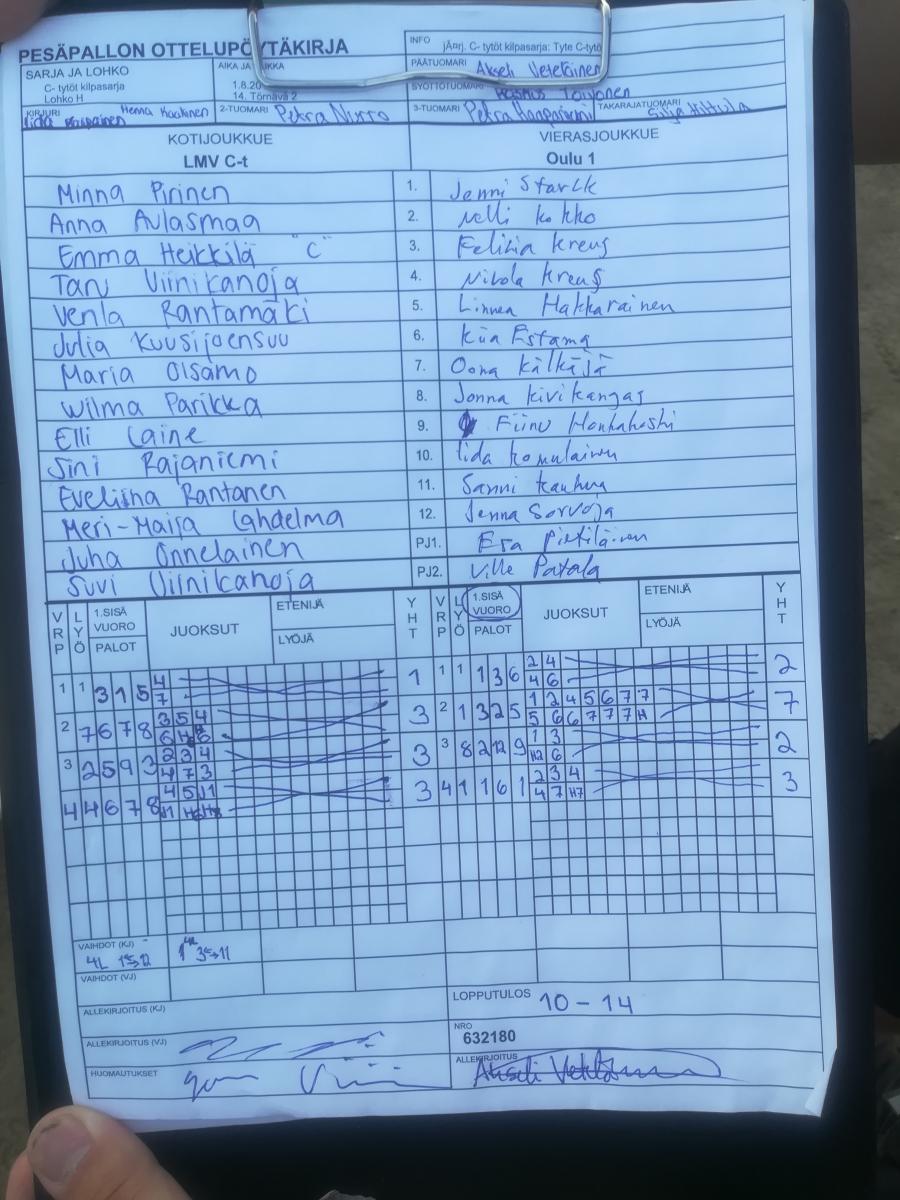 PESÄPALLON OTTELUPÖYTÄKIRJA
INFO jÄnrj. C- tytöt kilpasarja: Tyte C-tytö
SARJA JA LOHKO
C- tytöt kilpasarja
Lohko H
AIKA JA IKKA
1.8.20
14. Törnävä 2
PÄÄTUOMARI Akseli Veteläinen
SYÖTTÖTUOMARI Toivonen
KIRJURI Iida Henna
2-TUOMARI Petra Nisro
3-TUOMARI Petra
TAKARAJATUOMARI Silja Hiltula
KOTIJOUKKUE VIERASJOUKKUE
LMV C-t Oulu 1
Minna Pirinen 1. Jenni Starck
Anna Aulasmaa 2. Nelli Kokko
Emma Heikkilä "C" 3. Felizia Kreus
Taru Viinikanoja 4. Nikola Kreus
Venla Rantamäki 5. Linnea Hakkarainen
Julia Kuusijoensuu 6. Kiia Estama
Maria Olsamo 7. Oona Kälkäjä
Wilma Parikka 8. Jonna Kivikangas
Elli Laine 9. Fiinu Honkakoski
Sini Rajaniemi 10. Iida Komulainen
Eveliina Rantanen 11. Sanni
Meri-Maija Lahdelma 12. Jenna Sorvoja
Juha Onnelainen PJ1. Esa Pietiläinen
Suvi Viinikanoja PJ2. Ville Patala
VRP LYÖ 1.SISÄ VUORO PALOT JUOKSUT ETENIJÄ LYÖJÄ YHT VRP LYÖ 1.SISÄ VUORO PALOT JUOKSUT ETENIJÄ LYÖJÄ YHT
1 1 3 1 5 4 1 1 1 1 3 6 2 4 2
7 4 6
2 7 6 7 8 3 5 4 3 2 1 3 2 5 1 2 4 5 6 7 7 7
6 H6 5 6 6 7 7 7 H
3 2 5 9 3 2 3 4 3 3 8 2 12 9 1 3 2
4 7 3 H2 6
4 4 6 7 8 4 5 11 3 4 1 1 6 1 2 3 4 3
11 4 7 H7
VAIHDOT (KJ)
4L 1⇆12 3⇆11
VAIHDOT (VJ)
ALLEKIRJOITUS (KJ) LOPPUTULOS 10 – 14
ALLEKIRJOITUS (VJ) NRO
632180
HUOMAUTUKSET ALLEKIRJOITUS
Akseli